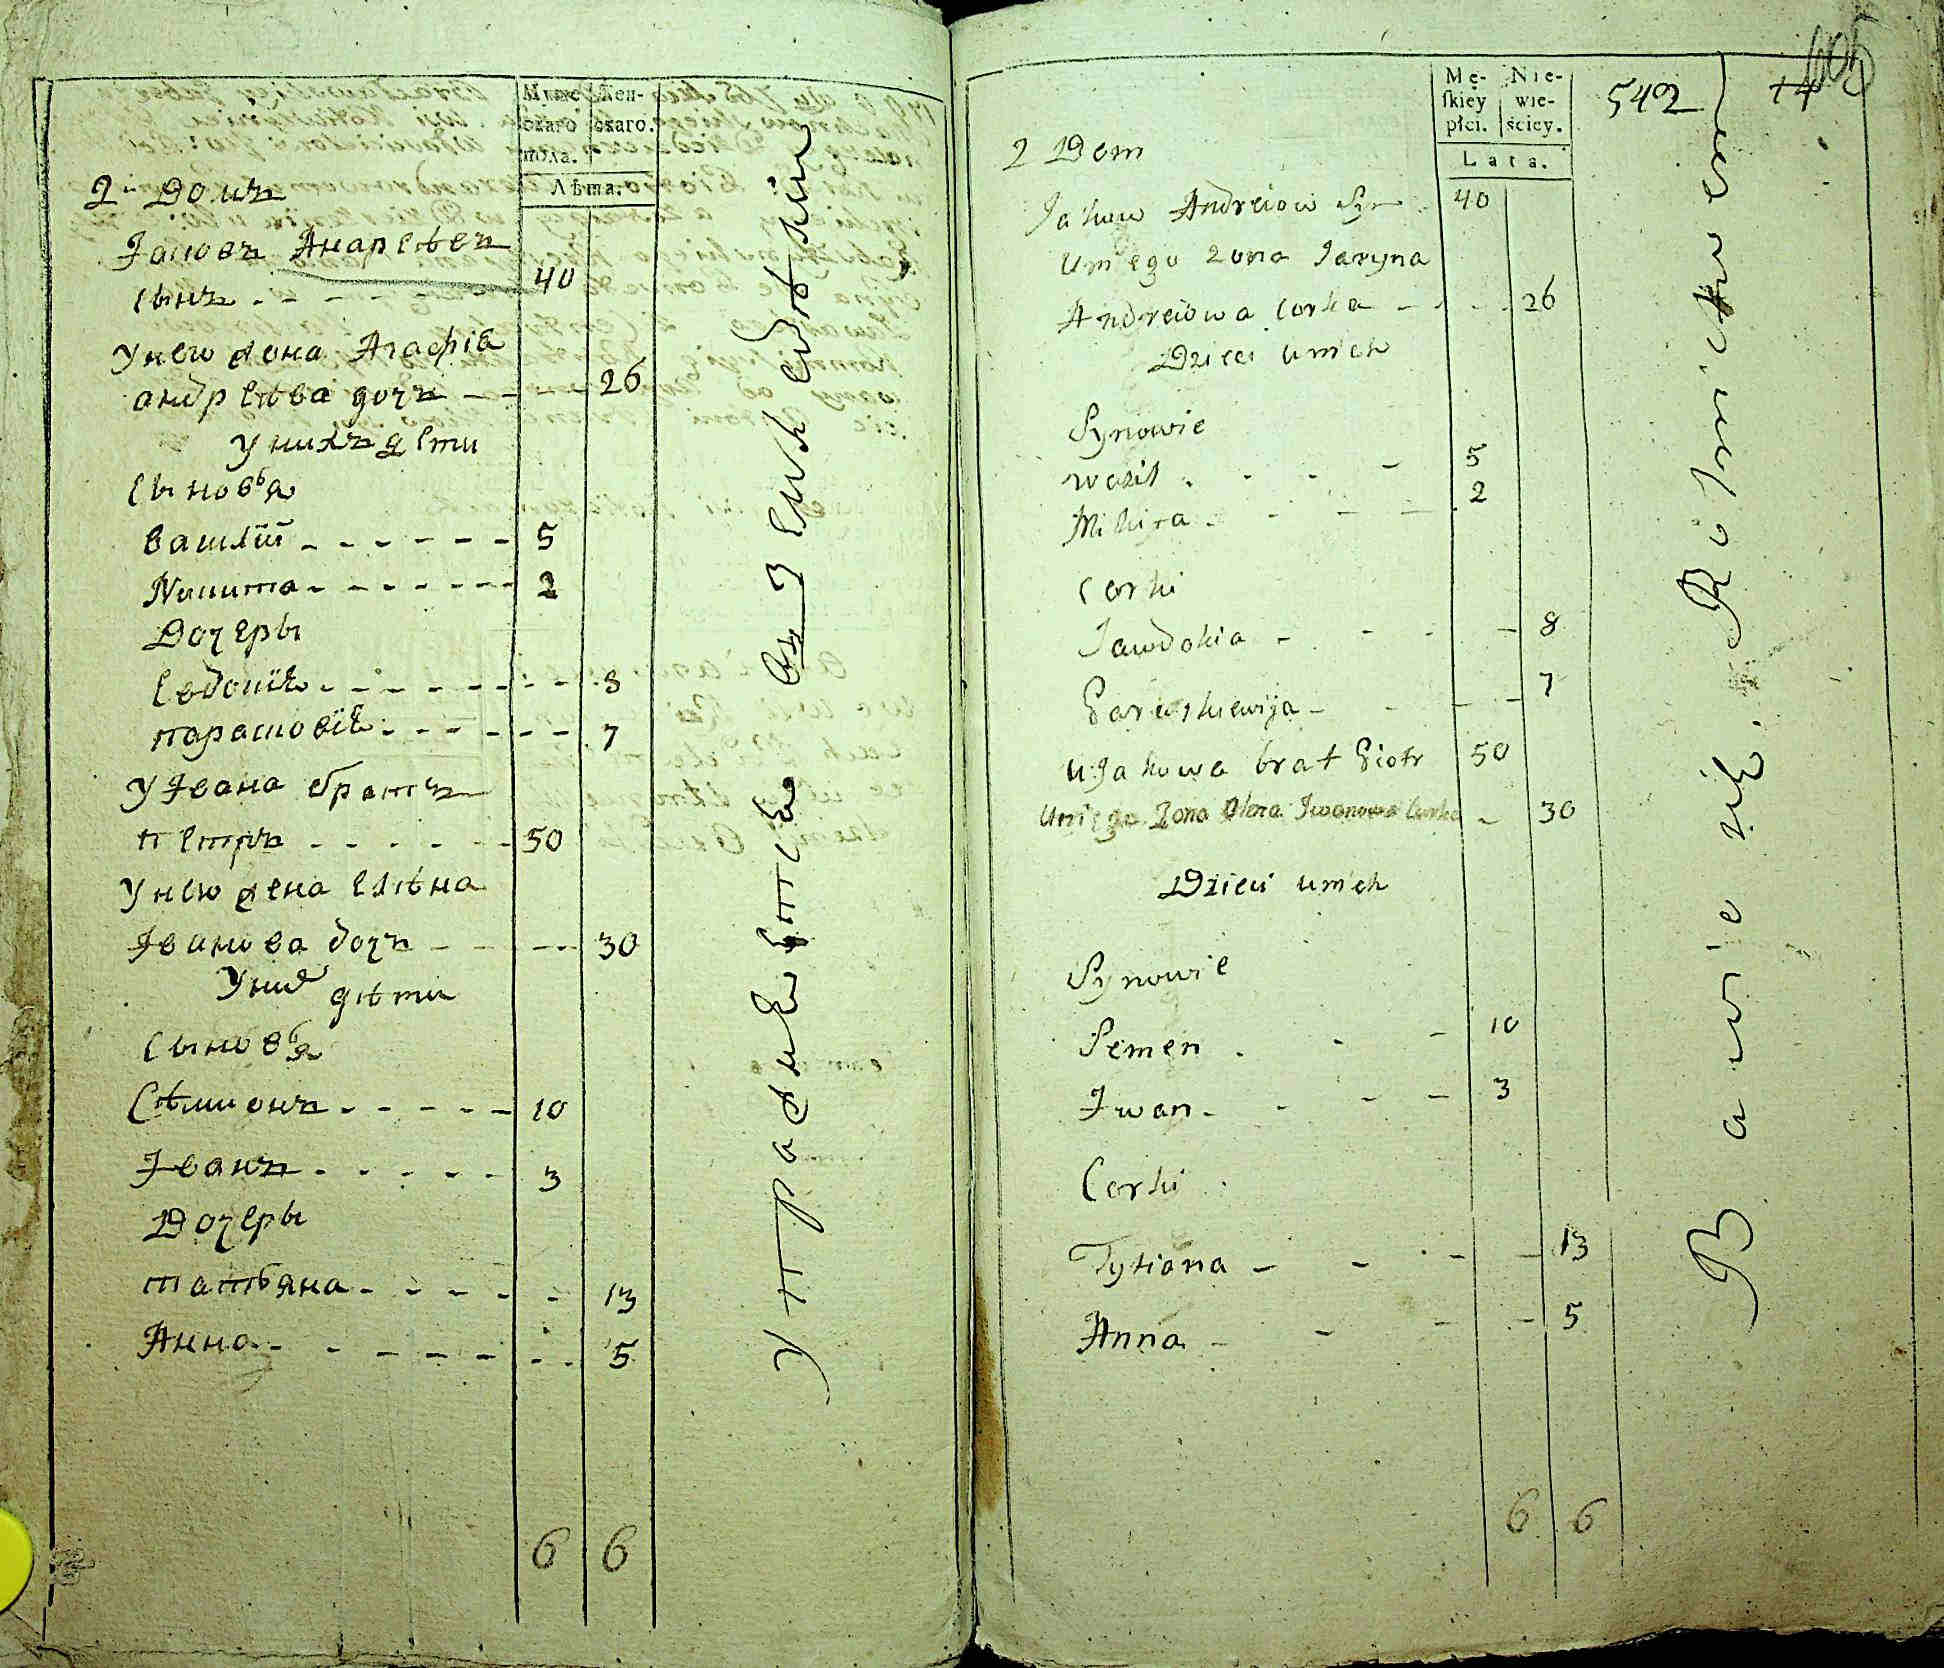 Муже- Жен-
скаго скаго.
пола.
Лѣта.
2й Домъ
Іаковъ Андрѣевъ
сынъ 40
У нево жена Агафія
андрѣева дочъ 26
У нихъ дети
Сыновья
василій 5
Никита 2
Дочеры
Евдокія 8
парасковія 7
У Івана братъ
петръ 50
У нево жена елѣна
Іванова дочъ 30
У них дѣти
Сыновья
Сѣмионъ 10
Іванъ 3
Дочеры
татьяна 13
Анна 5
6 6
542
Mę- Nie-
ſkiey wie-
płci. ściey.
Lata.
2 Dom
Jakow Andreiow Syn 40
U niego Zona Jaryna
Andreiowa Corka 26
Dzieci u nich
Synowie
Wasil 5
Mikita 2
Corki
Jawdokia 8
Paraskiewija 7
U Jakowa brat Piotr 50
U niego Zona Olena Iwanowa Corka 30
Dzieci u nich
Synowie
Semen 10
Iwan 3
Corki
Tytiana 13
Anna 5
6 6